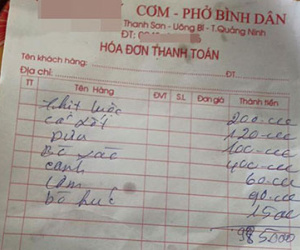 CƠM - PHỞ BÌNH DÂN
Thanh Sơn - Uông Bí - T.Quảng Ninh
ĐT:
HÓA ĐƠN THANH TOÁN
Tên khách hàng:
Địa chỉ: ĐT:
TT Tên Hàng ĐVT S.L Đơn giá Thành tiền
thịt luộc 200.000
120.000
Dưa 100.000
Bò xào 400.000
canh 60.000
cơm 90.000
bò húc 15.00
985000